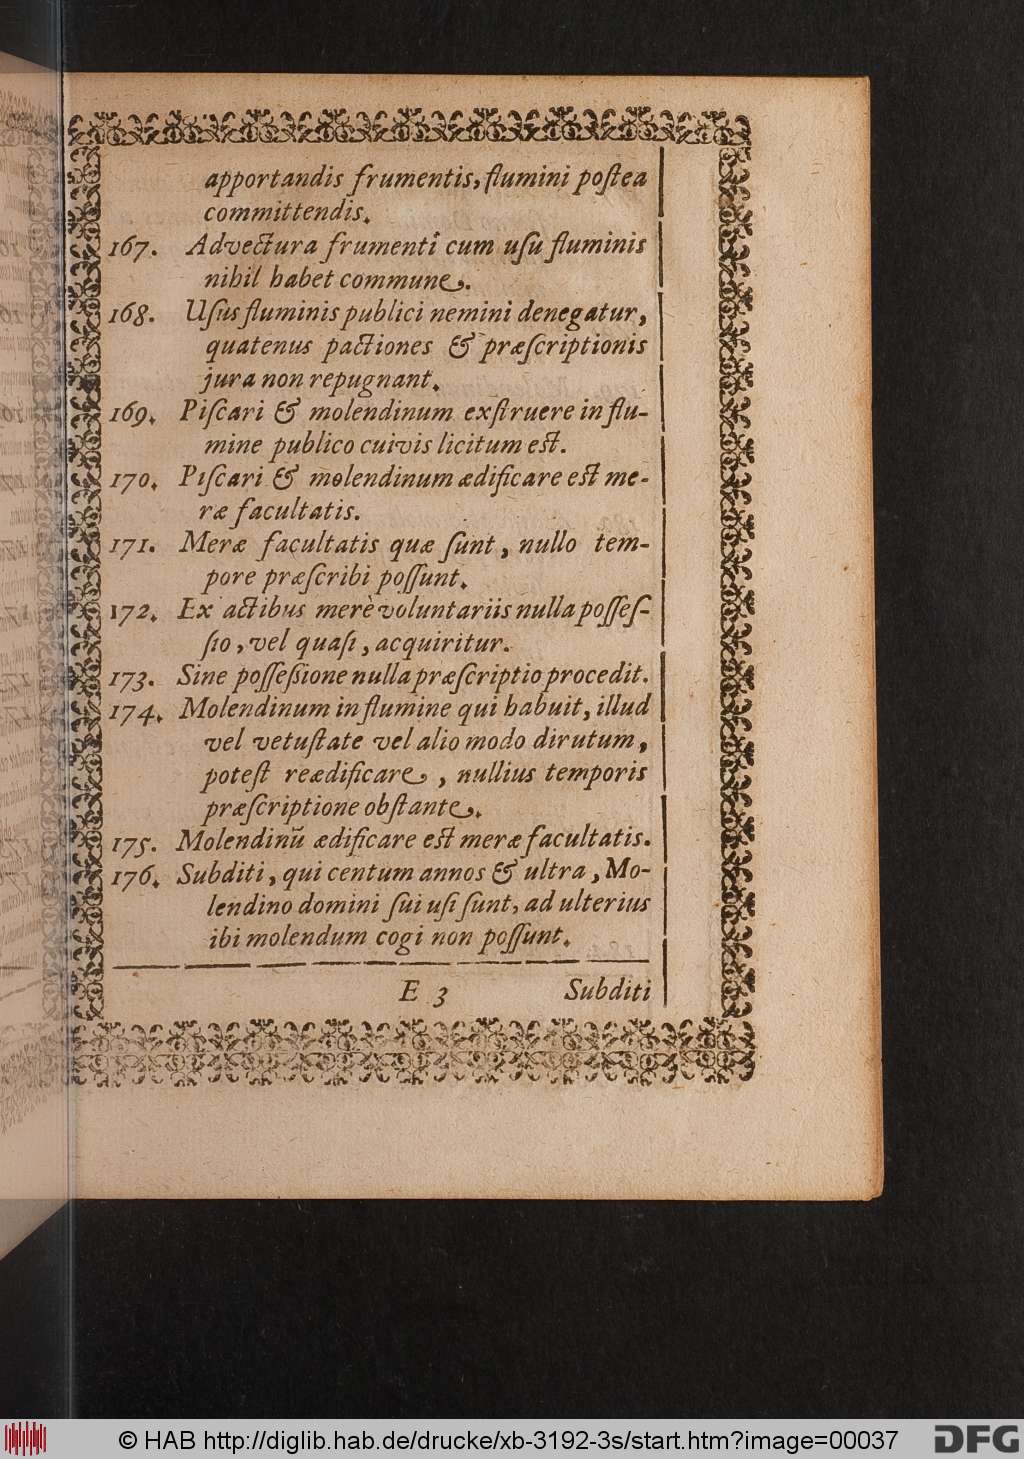 apportandis frumentis, flumini poſtea
committendis.
167. Advectura frumenti cum uſu fluminis
nihil habet commune.
168. Uſus fluminis publici nemini denegatur,
quatenus pactiones & præſcriptionis
jura non repugnant.
169. Piſcari & molendinum exſtruere in flu-
mine publico cuivis licitum est.
170. Piſcari & molendinum ædificare est me-
ræ facultatis.
171. Meræ facultatis quæ ſunt, nullo tem-
pore præſcribi poſſunt.
172. Ex actibus merè voluntariis nulla poſſeſ-
ſio, vel quaſi, acquiritur.
173. Sine poſſeſsione nulla præſcriptio procedit.
174. Molendinum in flumine qui habuit, illud
vel vetuſtate vel alio modo dirutum,
poteſt reædificare, nullius temporis
præſcriptione obſtante.
175. Molendinū ædificare est meræ facultatis.
176. Subditi, qui centum annos & ultra, Mo-
lendino domini ſui uſi ſunt, ad ulterius
ibi molendum cogi non poſſunt.
E 3 Subditi
© HAB http://diglib.hab.de/drucke/xb-3192-3s/start.htm?image=00037
DFG